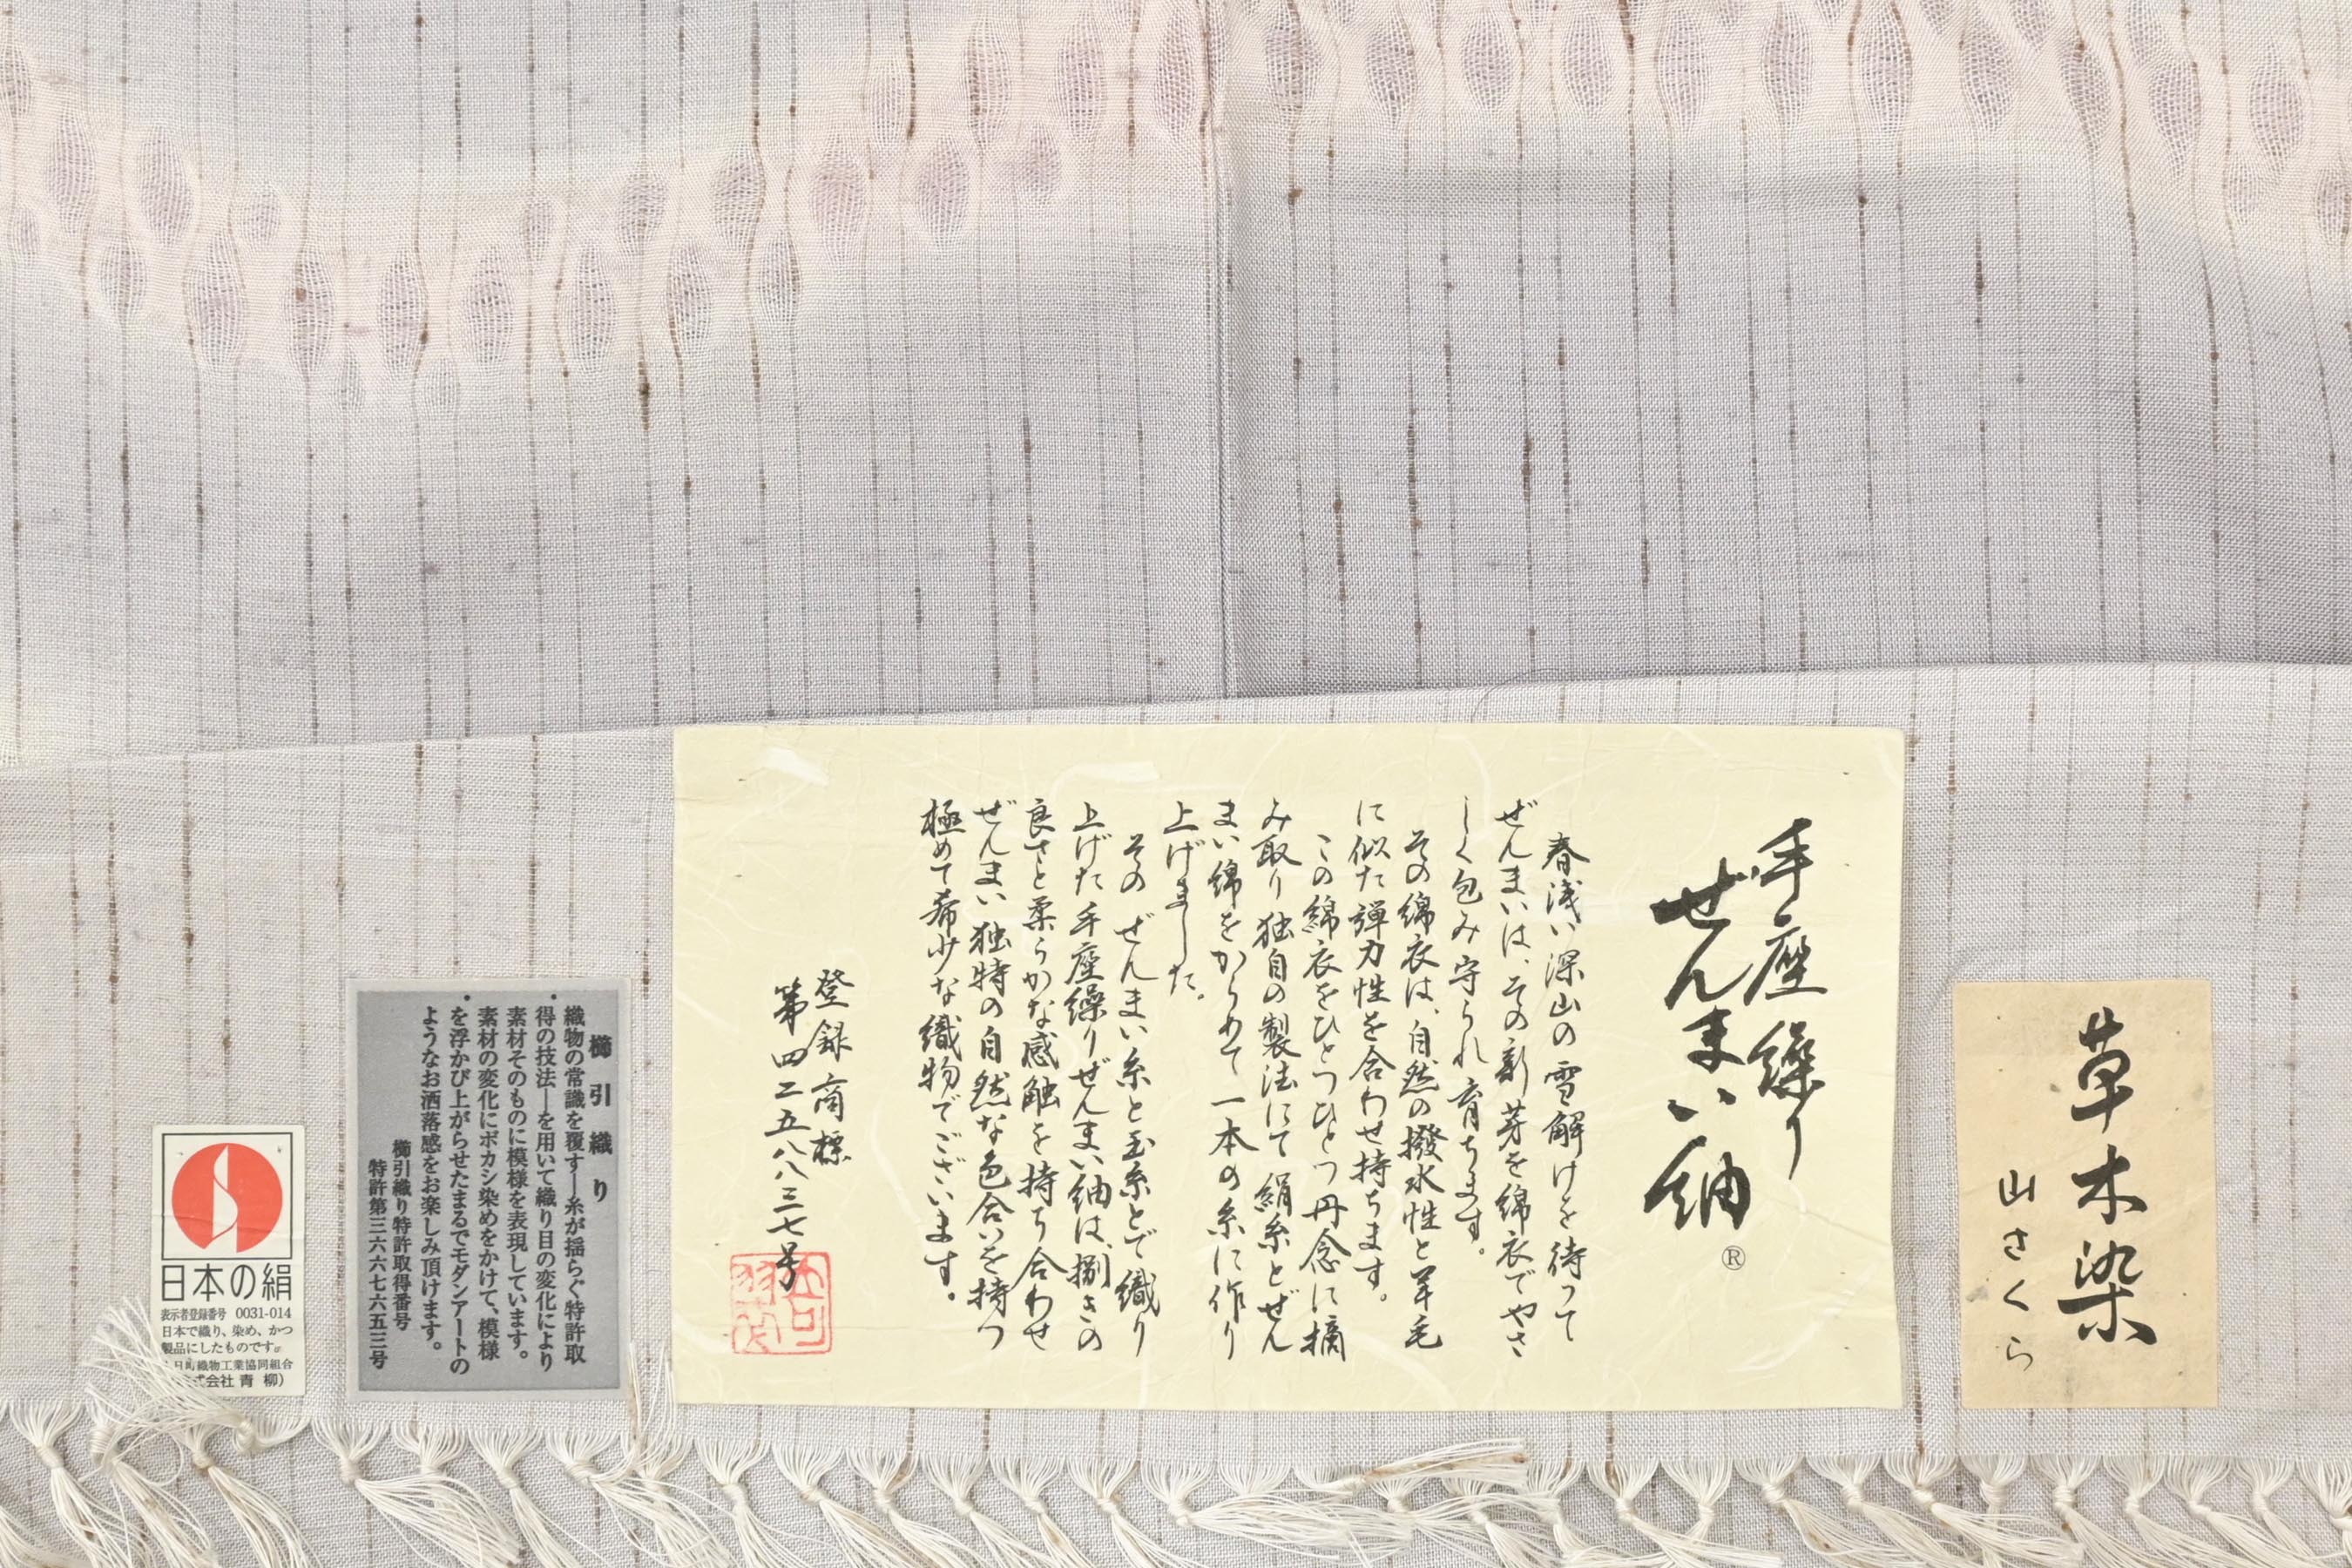 草木染
山さくら
手座繰り
ぜんまい紬
®
春浅い深山の雪解けを待って
ぜんまいは、その新芽を綿衣でやさ
しく包み守られ育ちます。
その綿衣は、自然の撥水性と羊毛
に似た弾力性を合わせ持ちます。
この綿衣をひとつひとつ丹念に摘
み取り独自の製法にて絹糸とぜん
まい綿をからめて一本の糸に作り
上げました。
そのぜんまい糸と玉糸とで織り
上げた手座繰りぜんまい紬は、捌きの
良さと柔らかな感触を持ち合わせ
ぜんまい独特の自然な色合いを持つ
極めて希少な織物でございます。
登録商標
第四二五八八三七号
櫛引織り
織物の常識を覆す―糸が揺らぐ特許取
得の技法―を用いて織り目の変化により
素材そのものに模様を表現しています。
素材の変化にボカシ染めをかけて、模様
を浮かび上がらせたまるでモダンアートの
ようなお洒落感をお楽しみ頂けます。
櫛引織り特許取得番号
特許第三六六七六五三号
日本の絹
表示者登録番号 0031-014
日本で織り、染め、かつ
製品にしたものです。
日町織物工業協同組合
式会社 青柳）